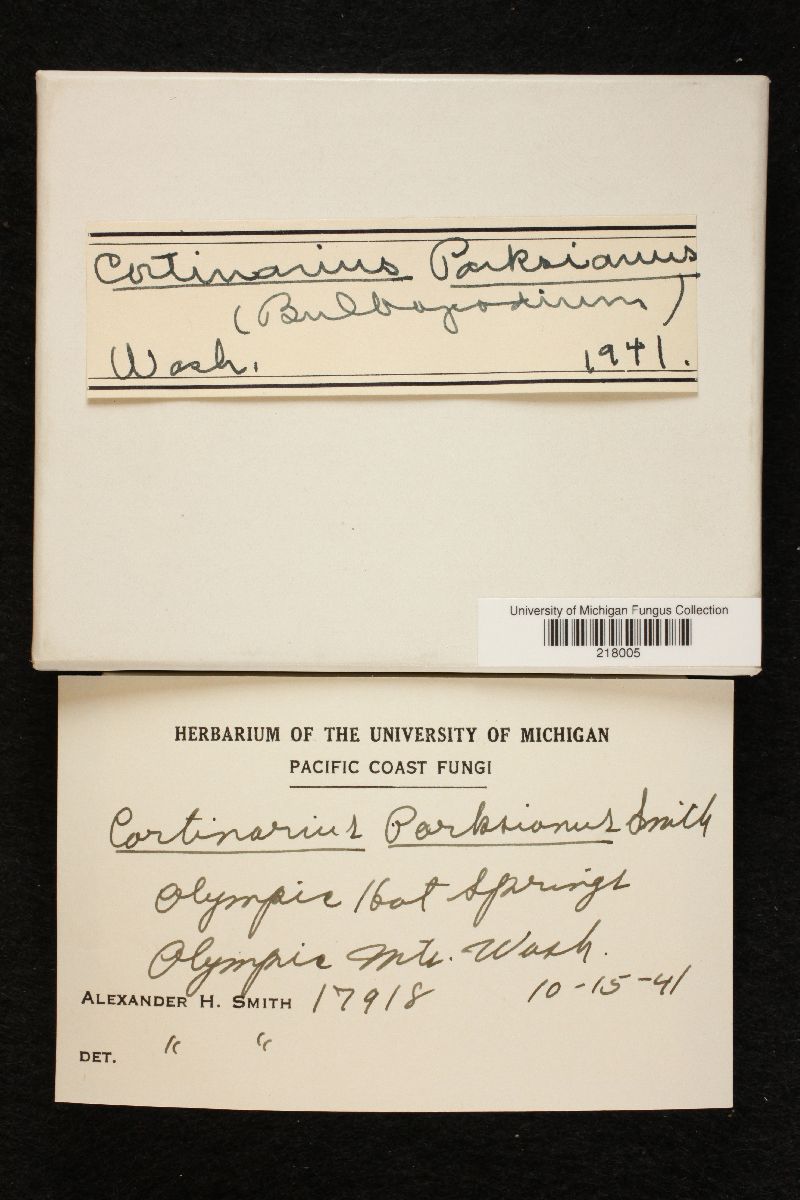 Cortinarius Parksianus
(Bulbopodium)
Wash. 1941.
University of Michigan Fungus Collection
218005
HERBARIUM OF THE UNIVERSITY OF MICHIGAN
PACIFIC COAST FUNGI
Cortinarius Parksianus Smith
Olympic Hot Springs
Olympic Mts. Wash.
ALEXANDER H. SMITH 17918 10-15-41
DET. " "